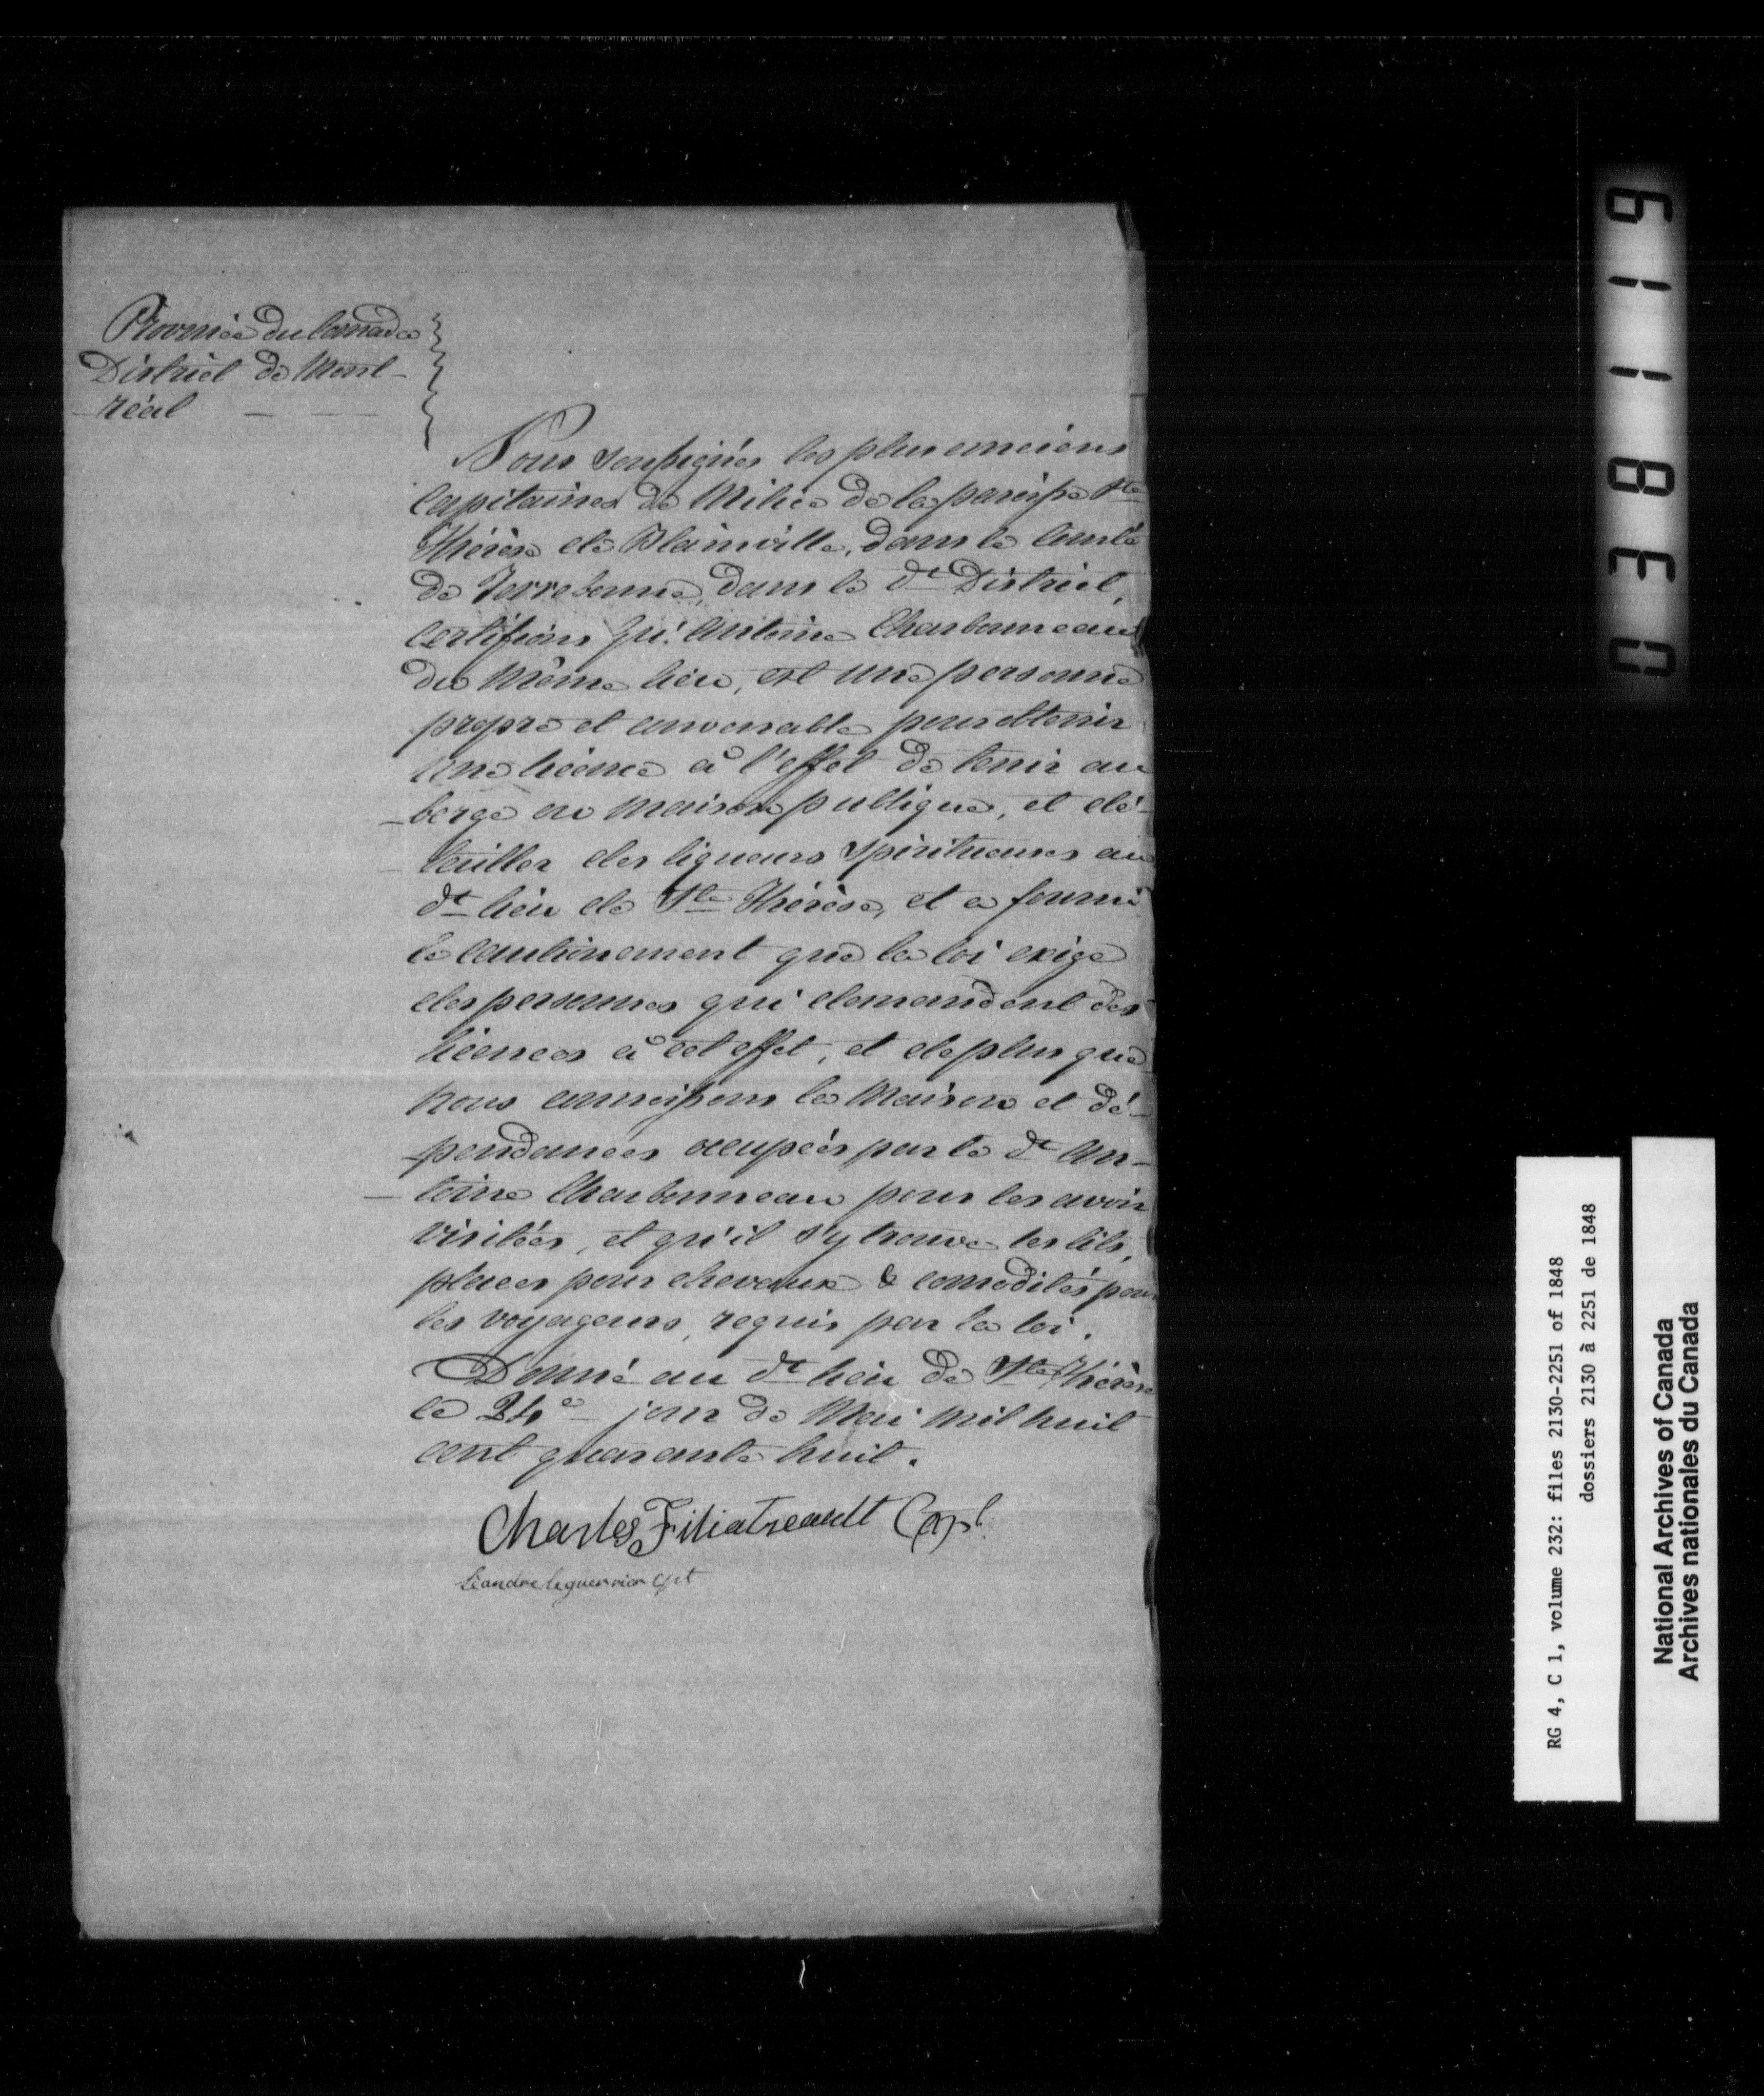 Province du Canada
District de Mont-
réal
Nous soussignés les plus anciens
Capitaines de Milice de la paroisse Ste
Thérèse de Blainville, dans le Comté
de Terrebonne, dans le dt District,
Certifions qu'Antoine Charbonneau
du même lieu, est une personne
propre et convenable pour obtenir
une licence à l'effet de tenir au
-berge ou maison publique, et dé-
tailler des liqueurs spiritueuses au
dt lieu de Ste Thérèse, et a fourni
le cautionement que la loi exige
des personnes qui demandent des
licences à cet effet, et de plus que
nous connaissons la maison et dé-
-pendances occupées par le dt An-
-toine Charbonneau pour les avoir
visitées, et qu'il s'y trouve les lits,
places pour chevaux & comodités pour
les voyageurs, requis par la loi.
Donné au dt lieu de Ste Thérèse
le 24e jour de Mai mil huit
cent quarante huit.
Charles Filiatreault Capt.
Léandre leguerrier cpt
03811 19
RG 4, C 1, volume 232: files 2130-2251 of 1848
dossiers 2130 à 2251 de 1848
National Archives of Canada
Archives nationales du Canada